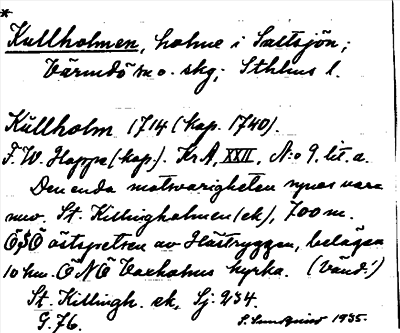 *
Kullholmen, holme i Saltsjön;
Värmdö m.o. skg; Sthlms l.
Kullholm 1714 (kop. 1740).
F. W. Hoppe (kop.). Kr.A, XXII, N:o 9, lit. a.
Den enda motsvarigheten synes vara
nuv. St. Killingholmen (ek), 700 m.
ÖSÖ östspetsen av Hästryggen, belägen
10 km. ÖNÖ Vaxholms kyrka. (Vänd!)
St. Killingh. ek, Sj: 234.
G. 76.
S. Sundquist 1935.